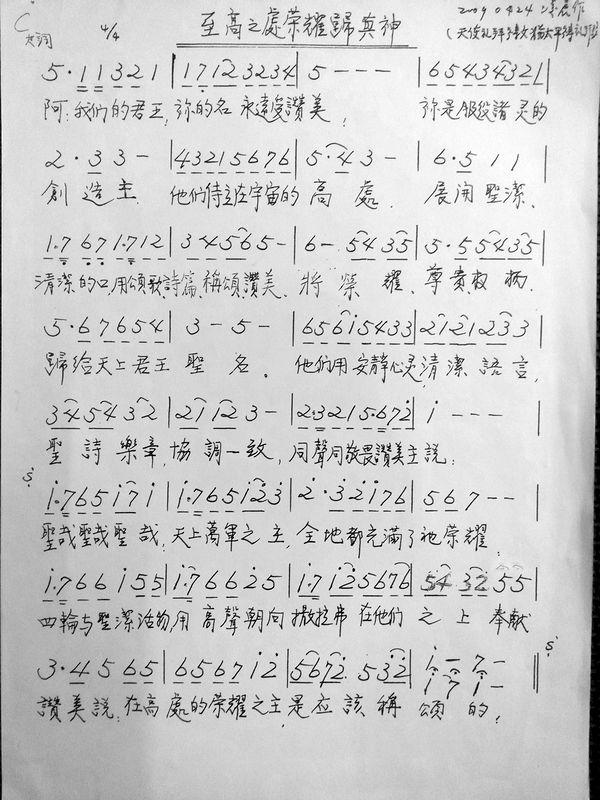 C 4/4 至高之處榮耀歸與神 2009 04 24
5·11321|17123234|5---|65434321|
阿,我們的君王,祢的名永遠受讚美, 祢是服役諸灵的
2·33-|43215676|5·43-|6·511|
創造主. 他們侍立在宇宙的高處. 展開聖潔、
1·7671·712|345665-|6-5435|5·55435|
清潔的口,用頌歌詩篇稱頌讚美、將榮耀、尊貴权柄
5·67654|3-5-|65615433|2121233|
歸給天上君王聖名。他們用安静心灵清潔語言,
345432|21123-|2·3215·672|1---|
聖詩樂章,協調一致,同聲同敬畏讚美主說:
S
1·765171|1·765123|2·32176|567--|
聖哉聖哉聖哉,天上萬軍之主,全地都充滿了祂荣耀,
1·766155|1·76625|1·7125676|543255|
四輪与聖潔活物,用高聲朝向撒拉弗在他們之上奉献
S
3·4565|656712|5672·532|1-7-||
171-
讚美說:在高處的荣耀之主是应該稱頌的,